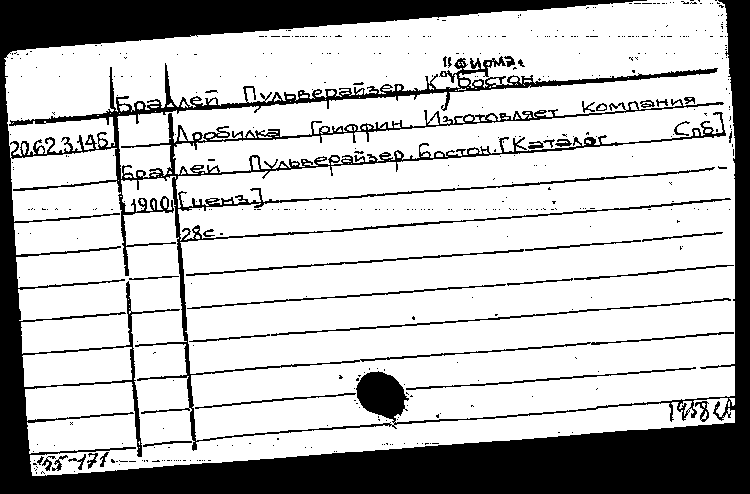 "фирма.
Брадлей Пульверайзер, К°, Бостон.
20.62.3.145. Дробилка Гриффин. Изготовляет Компания
Брадлей Пульверайзер. Бостон. [Каталог. Спб.]
1900 [ценз.].
28с.
1958
155-171.